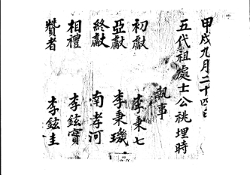 甲戌九月二十四日
五代祖處士公祧埋時
執事
初獻 李秉七
亞獻 李秉璣
終獻 南孝河
相禮 李鉉寶
贊者 李鉉圭